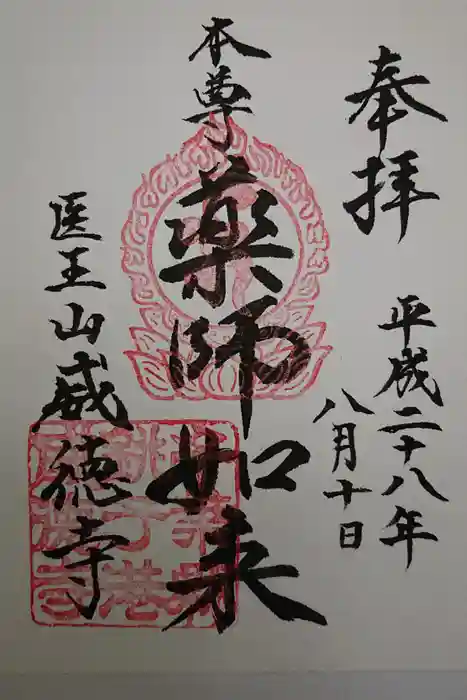 奉拝
平成二十八年
八月十日
本尊
薬師如来
医王山威徳寺